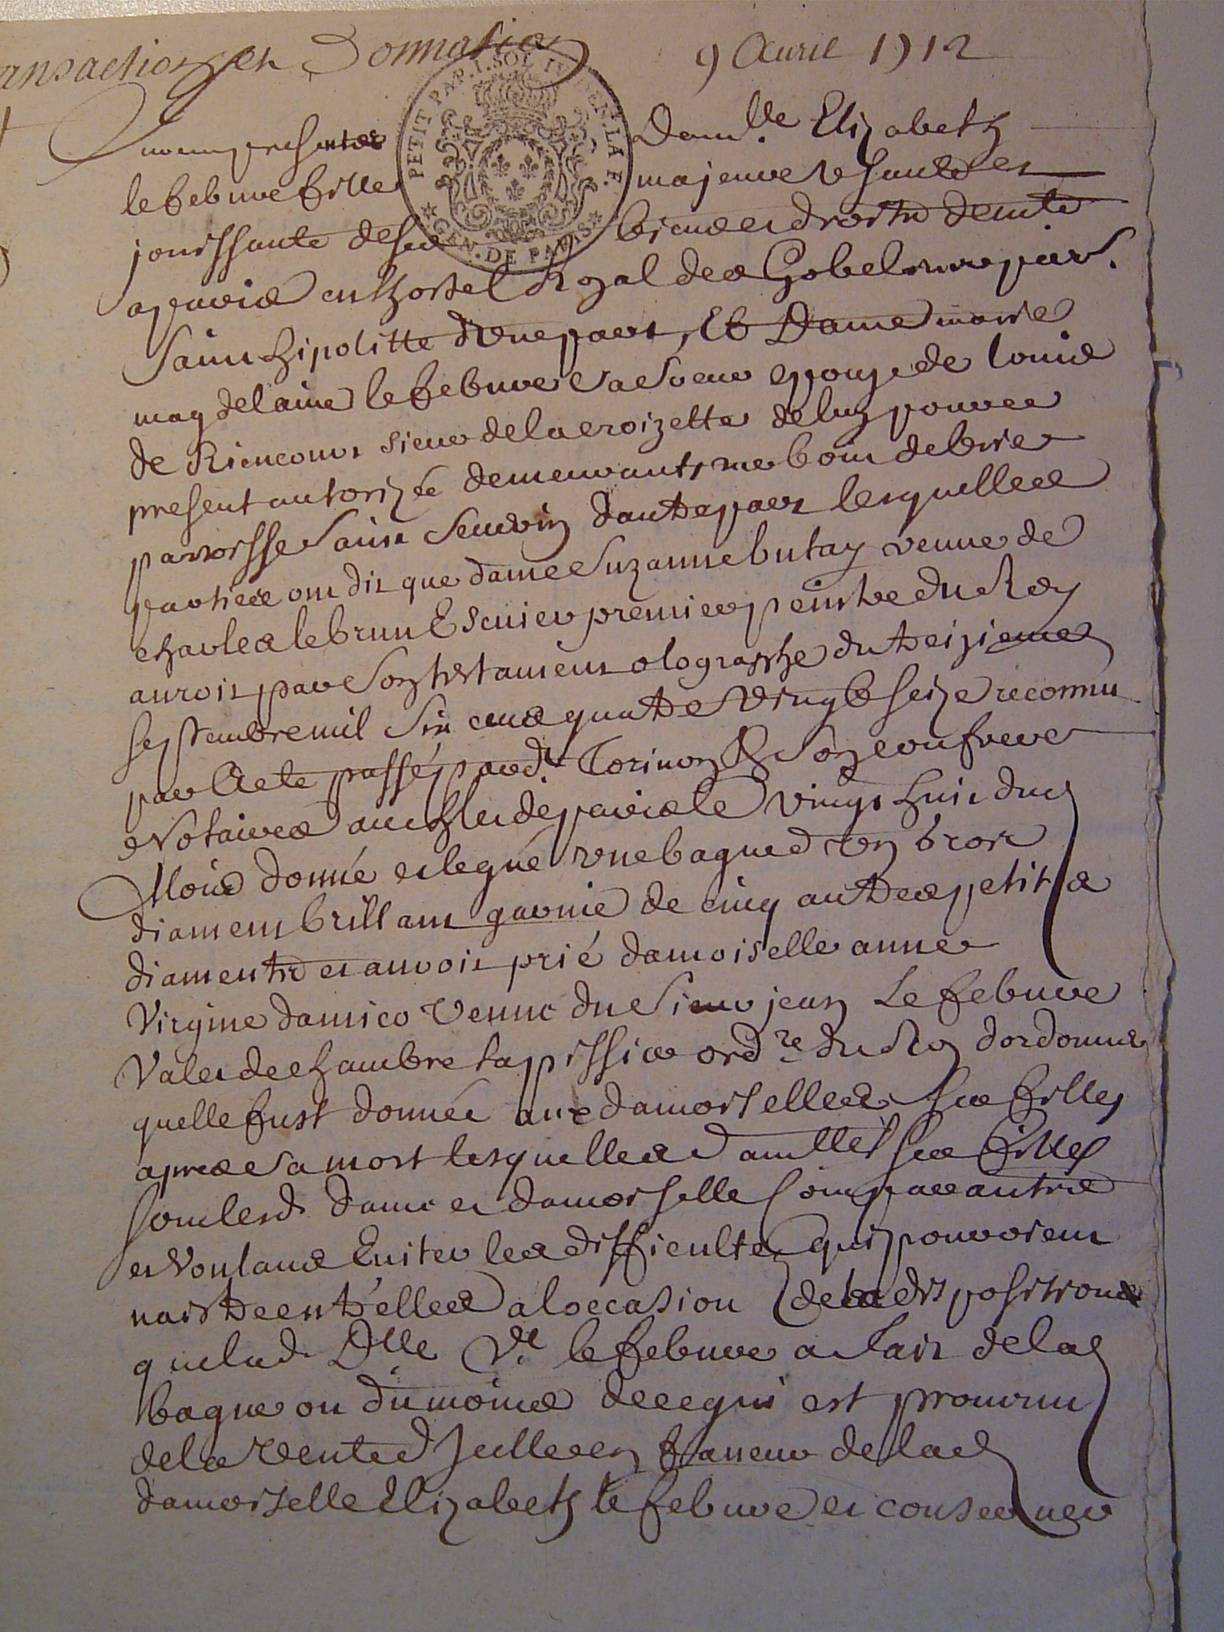 ansaction et Donnation 9 Avril 1712
PETIT PAP. I. SOL
GEN. DE PARIS
furent presentes Dam.lle Elizabeth
lefebure fille majeure usante et
jouissante de ses biens et droits demte
a paris en hostel Royal des Gobelins parr.
Saint hipolitte d'une part, Et Dame marie
magdelaine lefebure sa soeur epouze de louis
de Riencourt sieur de la croizette de luy pour ce
present autorizée demeurants rue boutdebrie
parroisse Saint Severin d'autre part lesquelles
parties ont dit que dame Suzanne butay veuve de
charles lebrun Escuier premier peintre du Roy
auroit par son testament olographe du treizieme
septembre mil six cens quatre vingt seize reconnu
par Acte passé pard.t Torinon & son confrere
Notaires au chlet de paris le vingt huit dud
Mois donné et legué une bague d'un gros
diament brillant garnie de cinq autres petits
diaments et auroit prié damoiselle anne
Virgine damico veuve du sieur jean Lefebure
Valet de chambre tapissier ord.re du Roy d'ordonner
quelle fust donnée aux damoiselles ses filles
apres sa mort lesquelles damlles ses filles
sont lesd. dame et damoiselle comparantes
et voulans Eviter les difficultez qui pouvoient
naistre entr'elles a loccasion de la disposition
que lad. Dlle V.e lefebure a fait de lad
bague ou du moins de ce qui est provenu
de la vente d'Icelle en faveur de lad
damoiselle Elizabeth lefebure et conserver